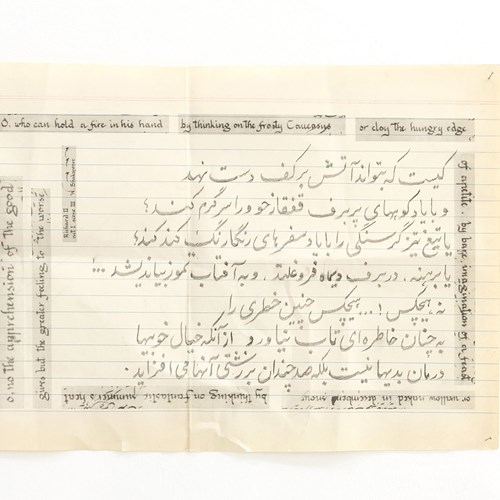 O. who can hold a fire in his hand
by thinking on the frosty Caucasus
or cloy the hungry edge
of apitite . by bare imagination of a feast
or wallow naked in december snow
by thinking on fantastic summer's heat
o. no the apprehension of the good
gives but the greater feeling to the worse
Richard II
act I. scene III
کیست که بتواند آتش بر کف دست نهد
و با یاد کوههای پر برف قفقاز خود را سرگرم کند؟
یا تیغ تیز گرسنگی را با یاد سفره‌های رنگارنگ کند کند؟
یا برهنه . در برف دیماه فرو غلتد . و به آفتاب تموز بیاندیشد ...!
نه هیچکس !... هیچکس چنین خطری را
به چنان خاطره‌ای تاب نیاورد از آنکه خیال خوبیها
درمان بدیها نیست بلکه صد چندان بر زشتی آنها می افزاید .